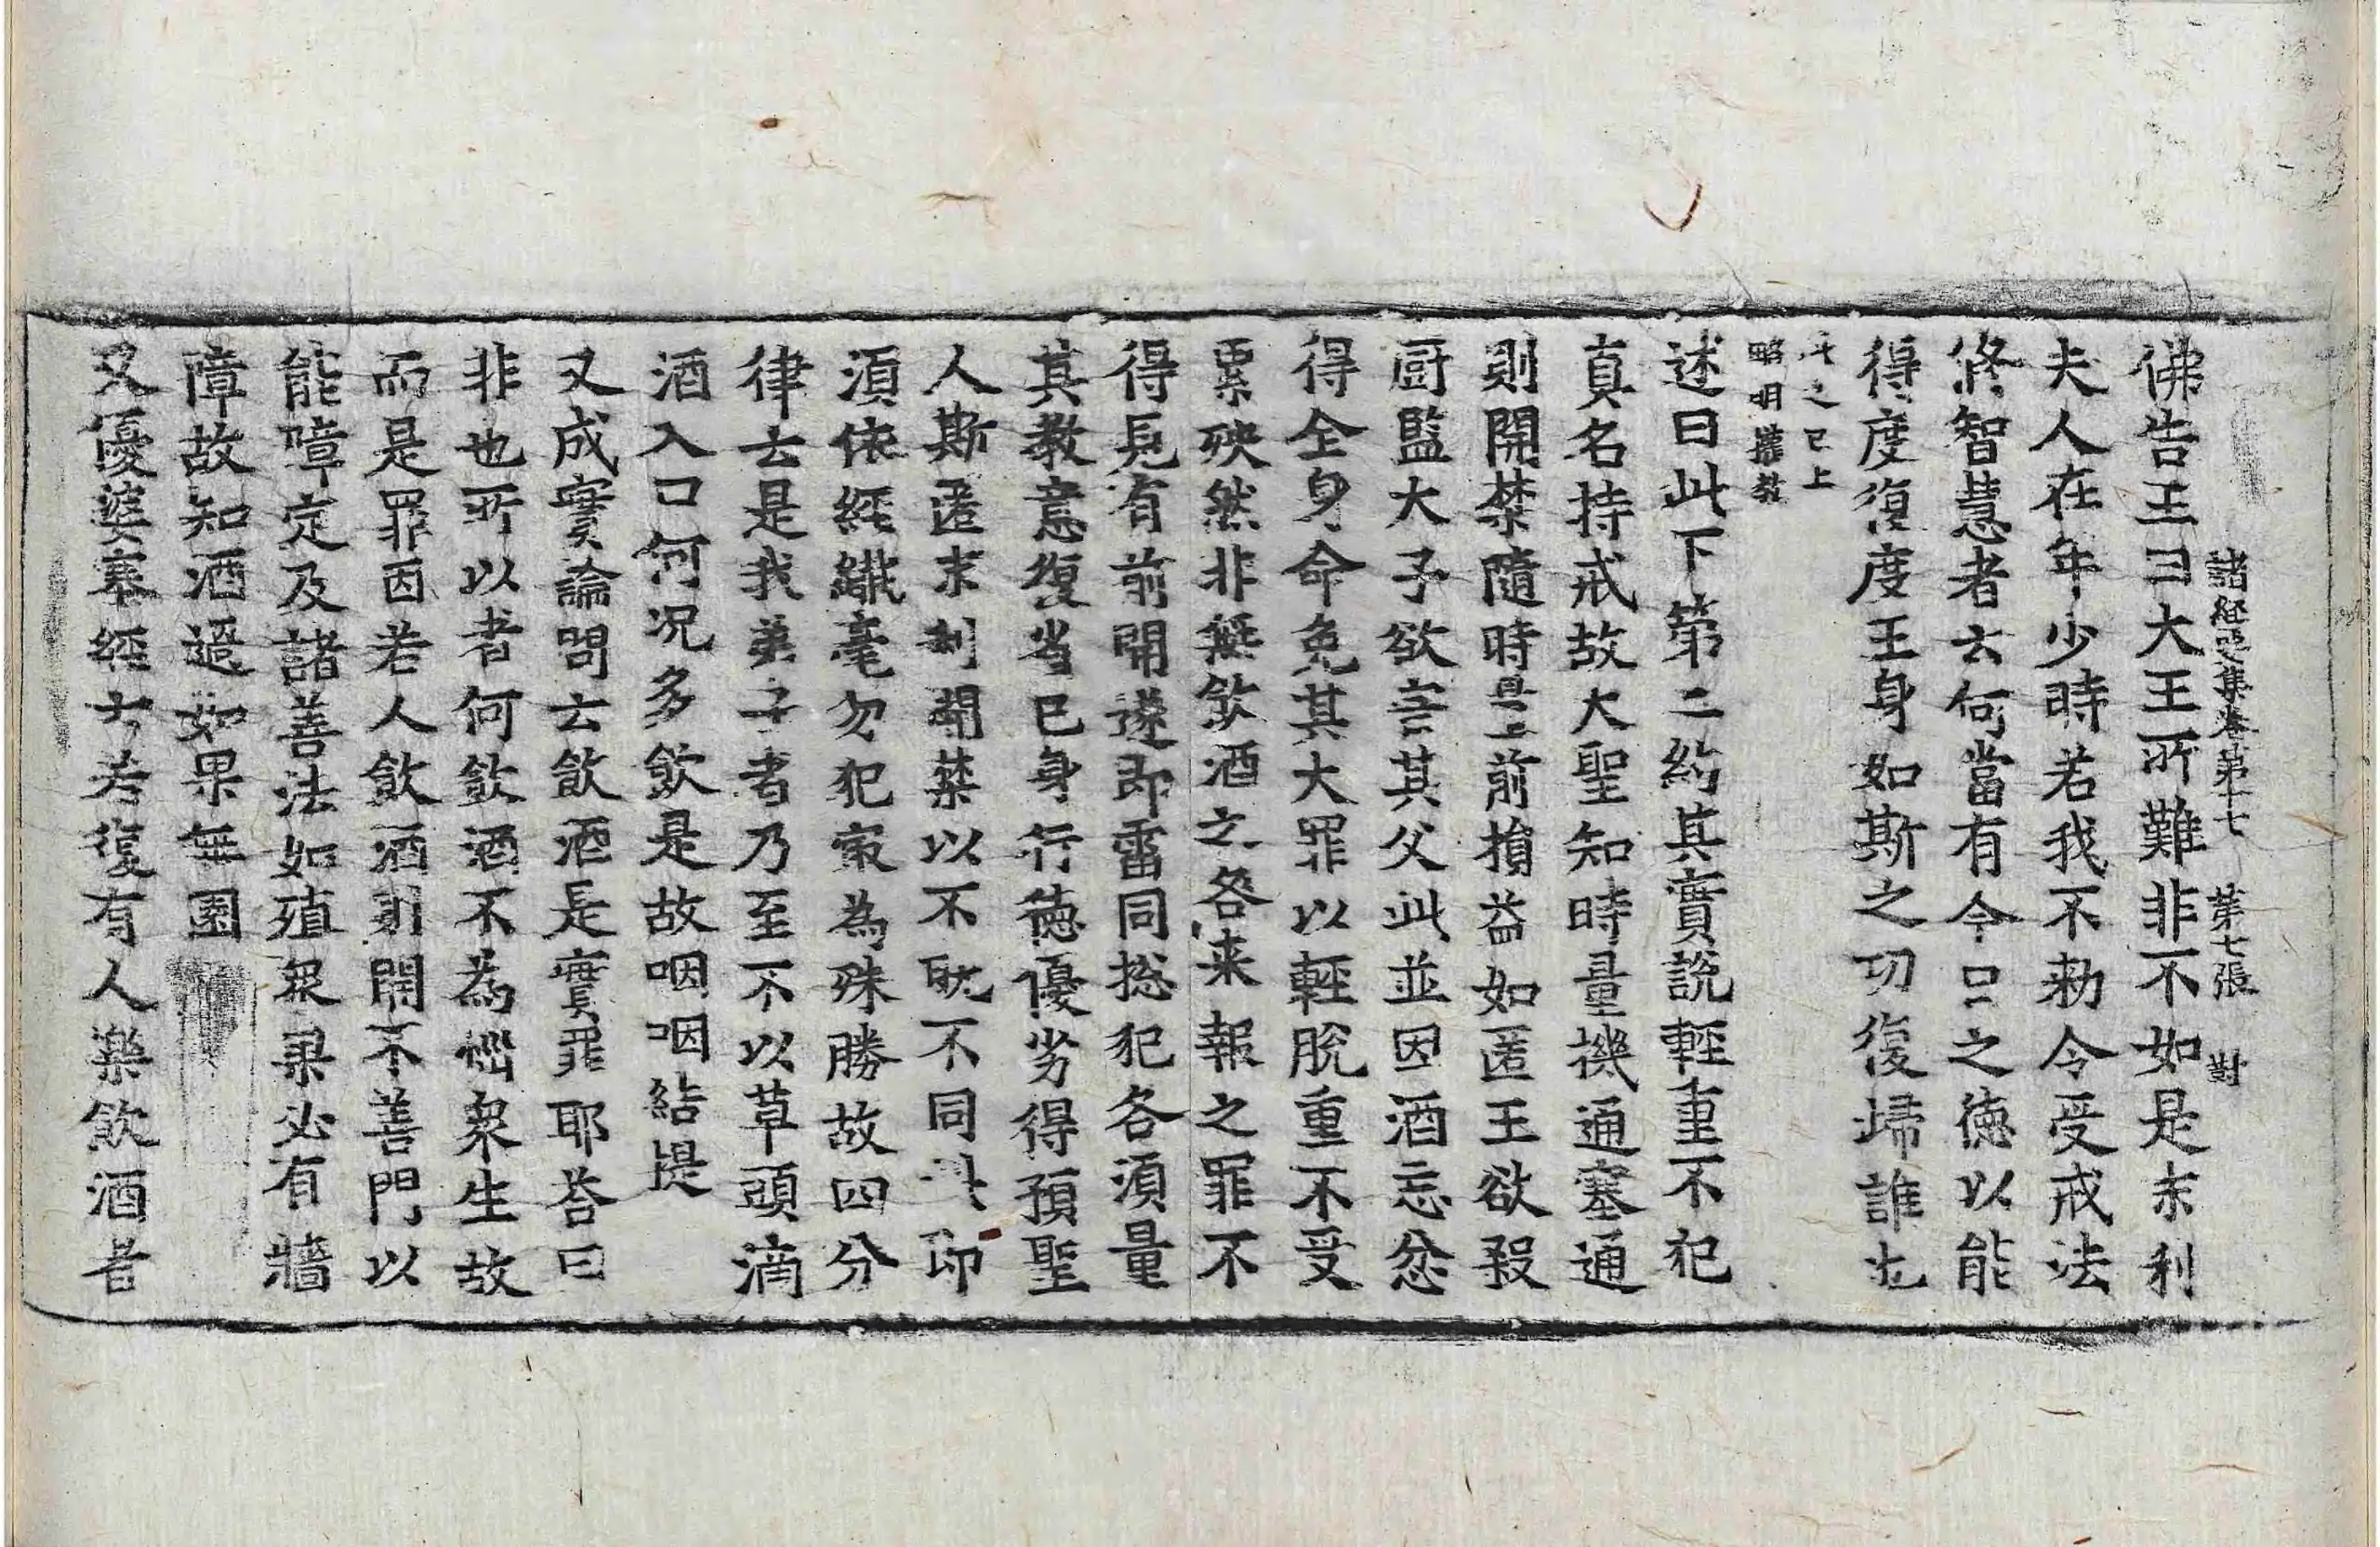 諸經要集卷第十七 第七張 對
佛告王曰大王所難非不如是末利
夫人在年少時若我不勑令受戒法
修智慧者云何當有今日之德以能
得度復度王身如斯之功復歸誰也
斤之已上
略明權教
述曰此下第二約其實說輕重不犯
真名持戒故大聖知時量機通塞通
則開禁隨時是上前損益如匿王欲殺
厨監大子欲害其父此並因酒忘忿
得全身命免其大罪以輕脫重不受
累殃然非無飲酒之咎来報之罪不
得見有前開遂即雷同捴犯各湏量
其教意復省已身行德優劣得預聖
人斯匿末利開禁以不耽不同 即
湏依經纖毫勿犯寂為殊勝故四分
律云是我弟子者乃至不以草頭滴
酒入口何况多飲是故咽咽結提
又成實論問云飲酒是實罪耶荅曰
非也所以者何飲酒不為惱衆生故
而是罪因若人飲酒則開不善門以
能障定及諸善法如殖衆果必有牆
障故知酒過如果無園
又優婆塞經云若復有人樂飲酒者